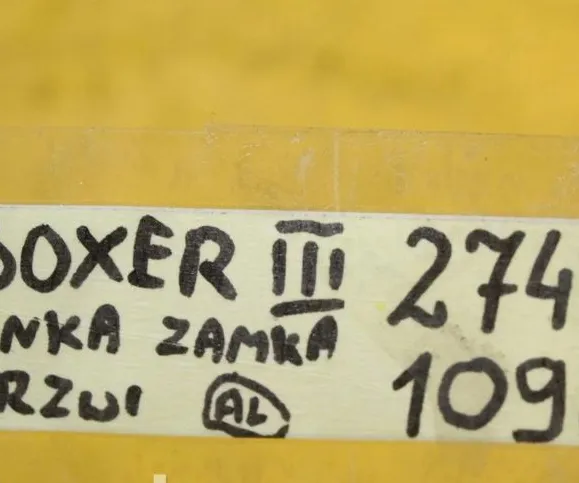 BOXER III 274
NKA ZAMKA
RZWI AL 109